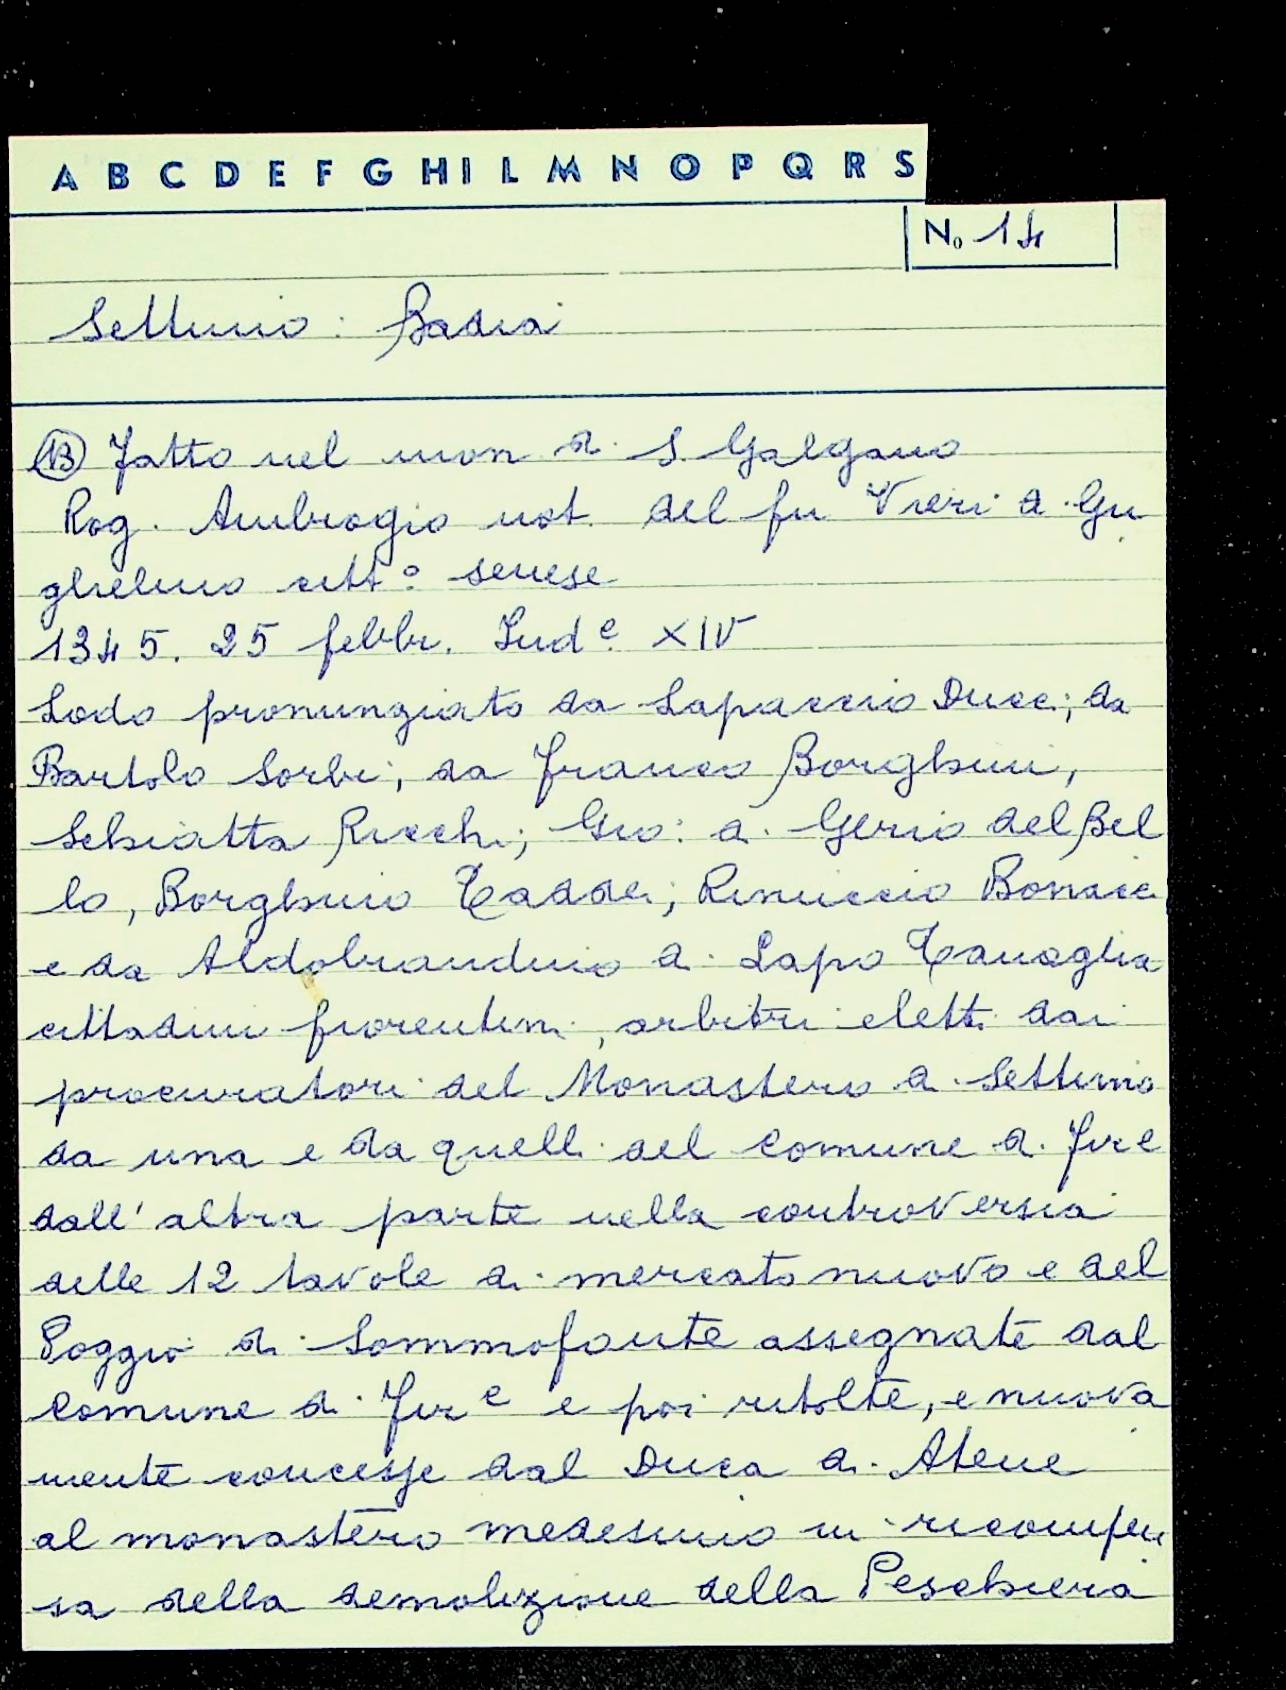 A B C D E F G H I L M N O P Q R S
No 14
Settimo : Badia
(13) Fatto nel mon di S. Galgano
Rog. Ambrogio not. del fu Vieri di Gu
glielmo citt.o senese
1345. 25 febbr. Ind.e XIV
Lodo pronunziato da Lapaccio Ducci; da
Bartolo Sorbi; da Franco Borghini,
Schiatta Ricchi; Gio: di Gerio del Bel
lo, Borghino Taddei; Rinuccio Bonacci
e da Aldobrandino di Lapo Tanaglia
cittadini fiorentini, arbitri eletti dai
procuratori del Monastero di Settimo
da una e da quelli del Comune di Fire
dall'altra parte nella controversia
delle 12 tavole di mercato nuovo e del
Poggio di Sommofonte assegnate dal
Comune di Fir.e e poi ritolte, e nuova
mente concesse dal Duca di Atene
al monastero medesimo in ricompen
sa della demolizione della Peschiera